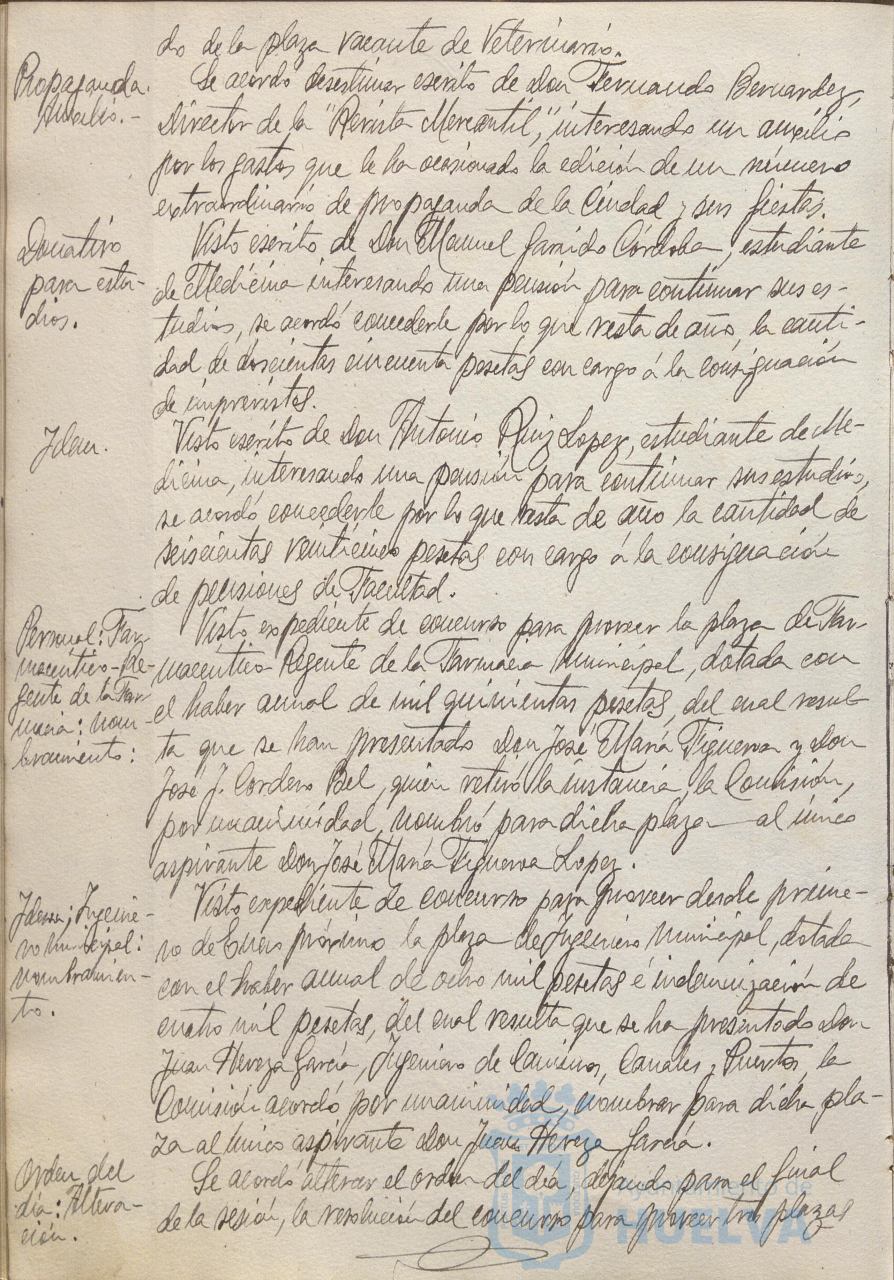 do de la plaza vacante de Veterinario.
Propaganda.
Se acordó desestimar escrito de Don Fernando Bernardez,
Director de la "Revista Mercantil", interesando un auxilio
por los gastos que le ha ocasionado la edición de un número
extraordinario de propaganda de la Ciudad y sus fiestas.
Donativo
para estu-
dios.
Visto escrito de Don Manuel Garrido Córdoba, estudiante
de Medicina interesando una pensión para continuar sus es-
tudios, se acordó concederle por lo que resta de año, la canti-
dad de doscientas cincuenta pesetas con cargo á la consignación
de imprevistos.
Idem.
Visto escrito de Don Antonio Ruiz Lopez, estudiante de Me-
dicina, interesando una pensión para continuar sus estudios,
se acordó concederle por lo que resta de año la cantidad de
seiscientas veinticinco pesetas con cargo á la consignación
de pensiones de Facultad.
Personal: Far-
maceútico-Re-
gente de la Far-
macia: nom-
bramiento:
Visto expediente de concurso para proveer la plaza de Far-
maceútico Regente de la Farmacia municipal, dotada con
el haber anual de mil quinientas pesetas, del cual resul-
ta que se han presentado Don José María Figueroa y Don
José J. Cordero Bel, quien retiró la instancia, la Comisión,
por unanimidad, nombró para dicha plaza al único
aspirante Don José María Figueroa Lopez.
Idem; Ingenie-
ro municipal:
nombramien-
to.
Visto expediente de concurso para proveer desde prime-
ro de Enero próximo la plaza de Ingeniero municipal, dotada
con el haber anual de ocho mil pesetas é indemnización de
cuatro mil pesetas, del cual resulta que se ha presentado Don
Juan Hereza García, Ingeniero de Caminos, Canales y Puertos, la
Comisión acordó por unanimidad, nombrar para dicha pla-
za al único aspirante Don Juan Hereza García.
Orden del
día: Altera-
ción.
Se acordó alterar el orden del día, dejando para el final
de la sesión, la resolución del concurso para proveer tres plazas
Ayuntamiento de
HUELVA